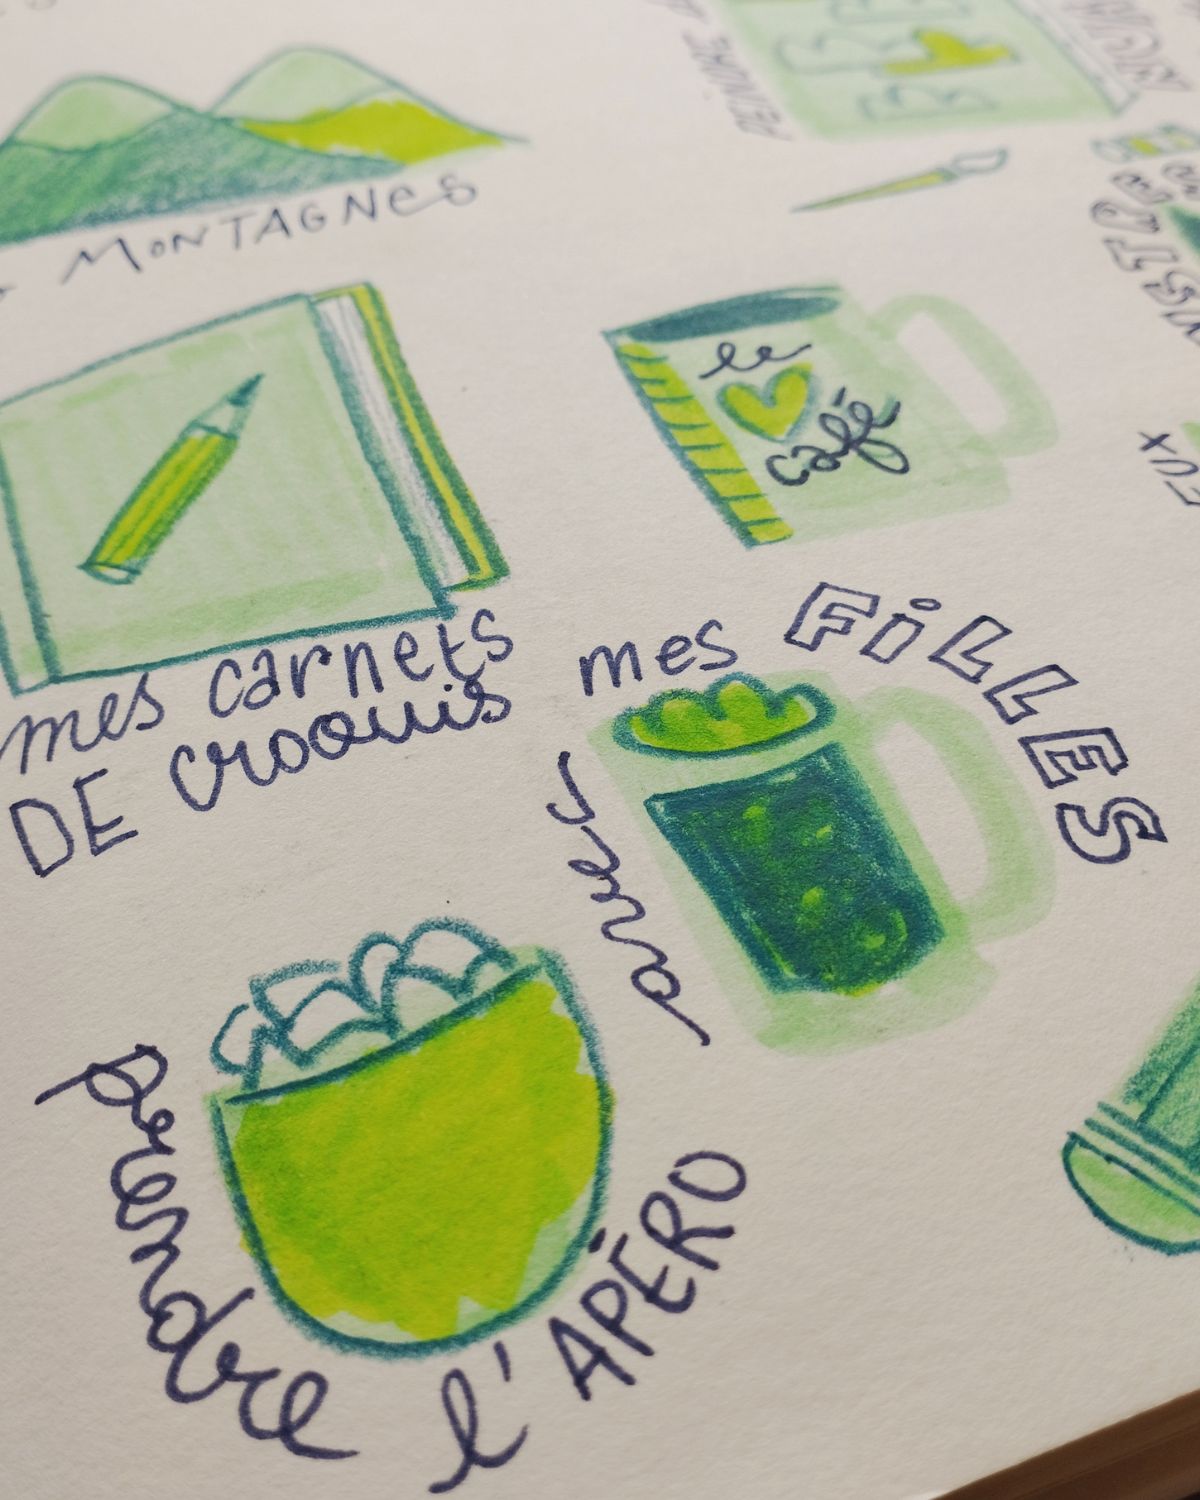 MONTAGNes
le
café
mes carnets
DE croquis
prendre l'APÉRO
avec mes FiLLES